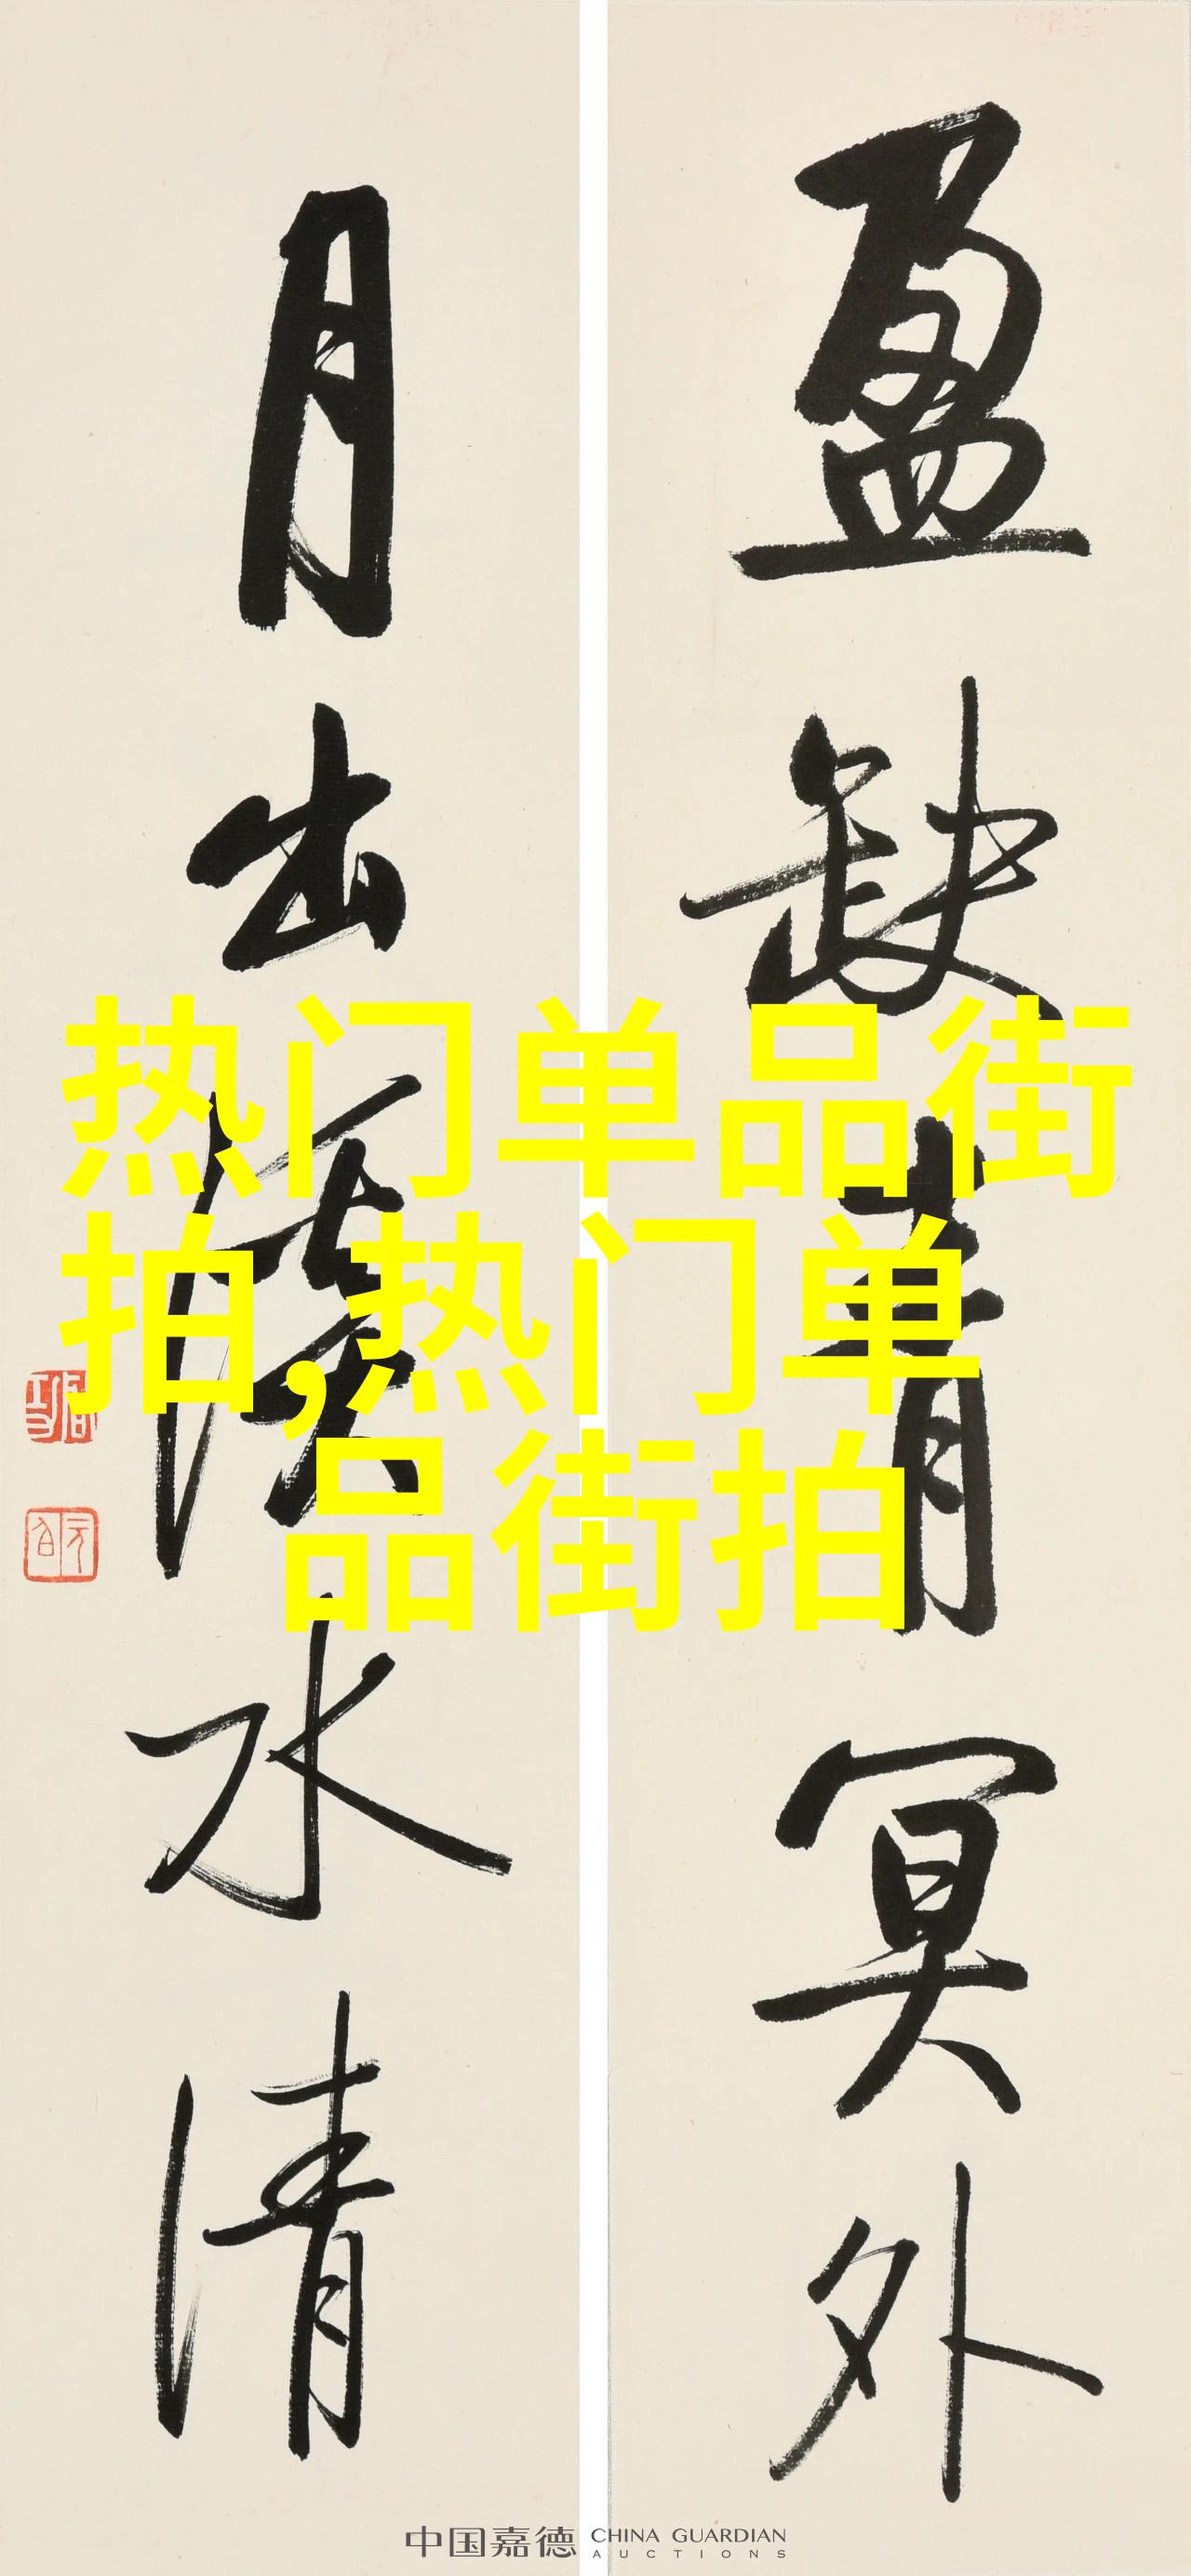 盈缺青冥外
月出水清
热门单品街
拍,热门单
品街拍
中国嘉德 CHINA GUARDIAN
AUCTIONS